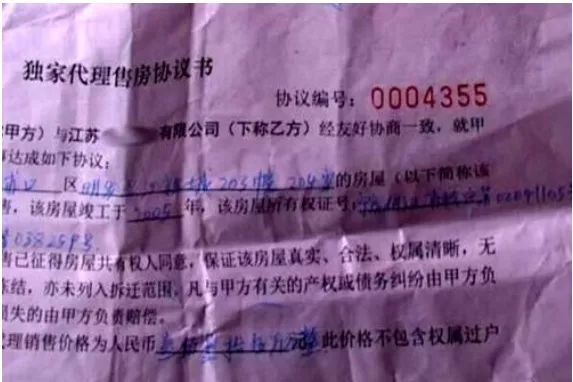 独家代理售房协议书
协议编号：0004355
甲方）与江苏 有限公司（下称乙方）经友好协商一致，就甲
达成如下协议：
区 城203幢204室的房屋（以下简称该
售，该房屋竣工于2005年，该房屋所有权证号：
售已征得房屋共有权人同意，保证该房屋真实、合法、权属清晰，无
冻结，亦未列入拆迁范围，凡与甲方有关的产权或债务纠纷由甲方负
损失的由甲方负责赔偿。
代理销售价格为人民币 此价格不包含权属过户